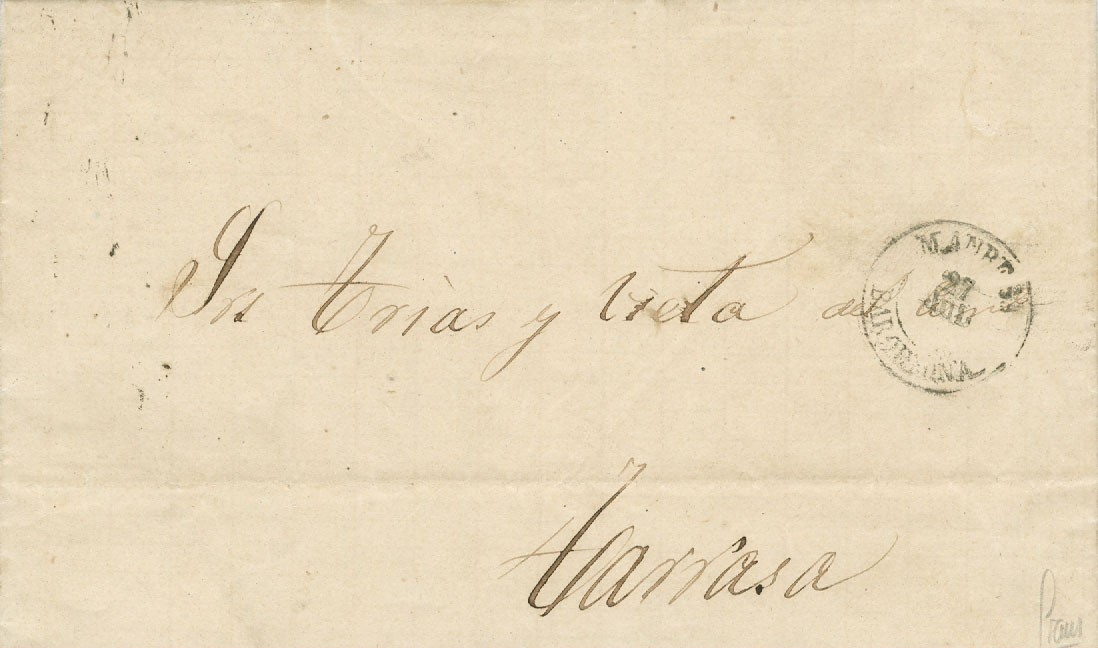 Srs Trias y Vieta del
MANRESA
27
BARCELONA
Tarrasa